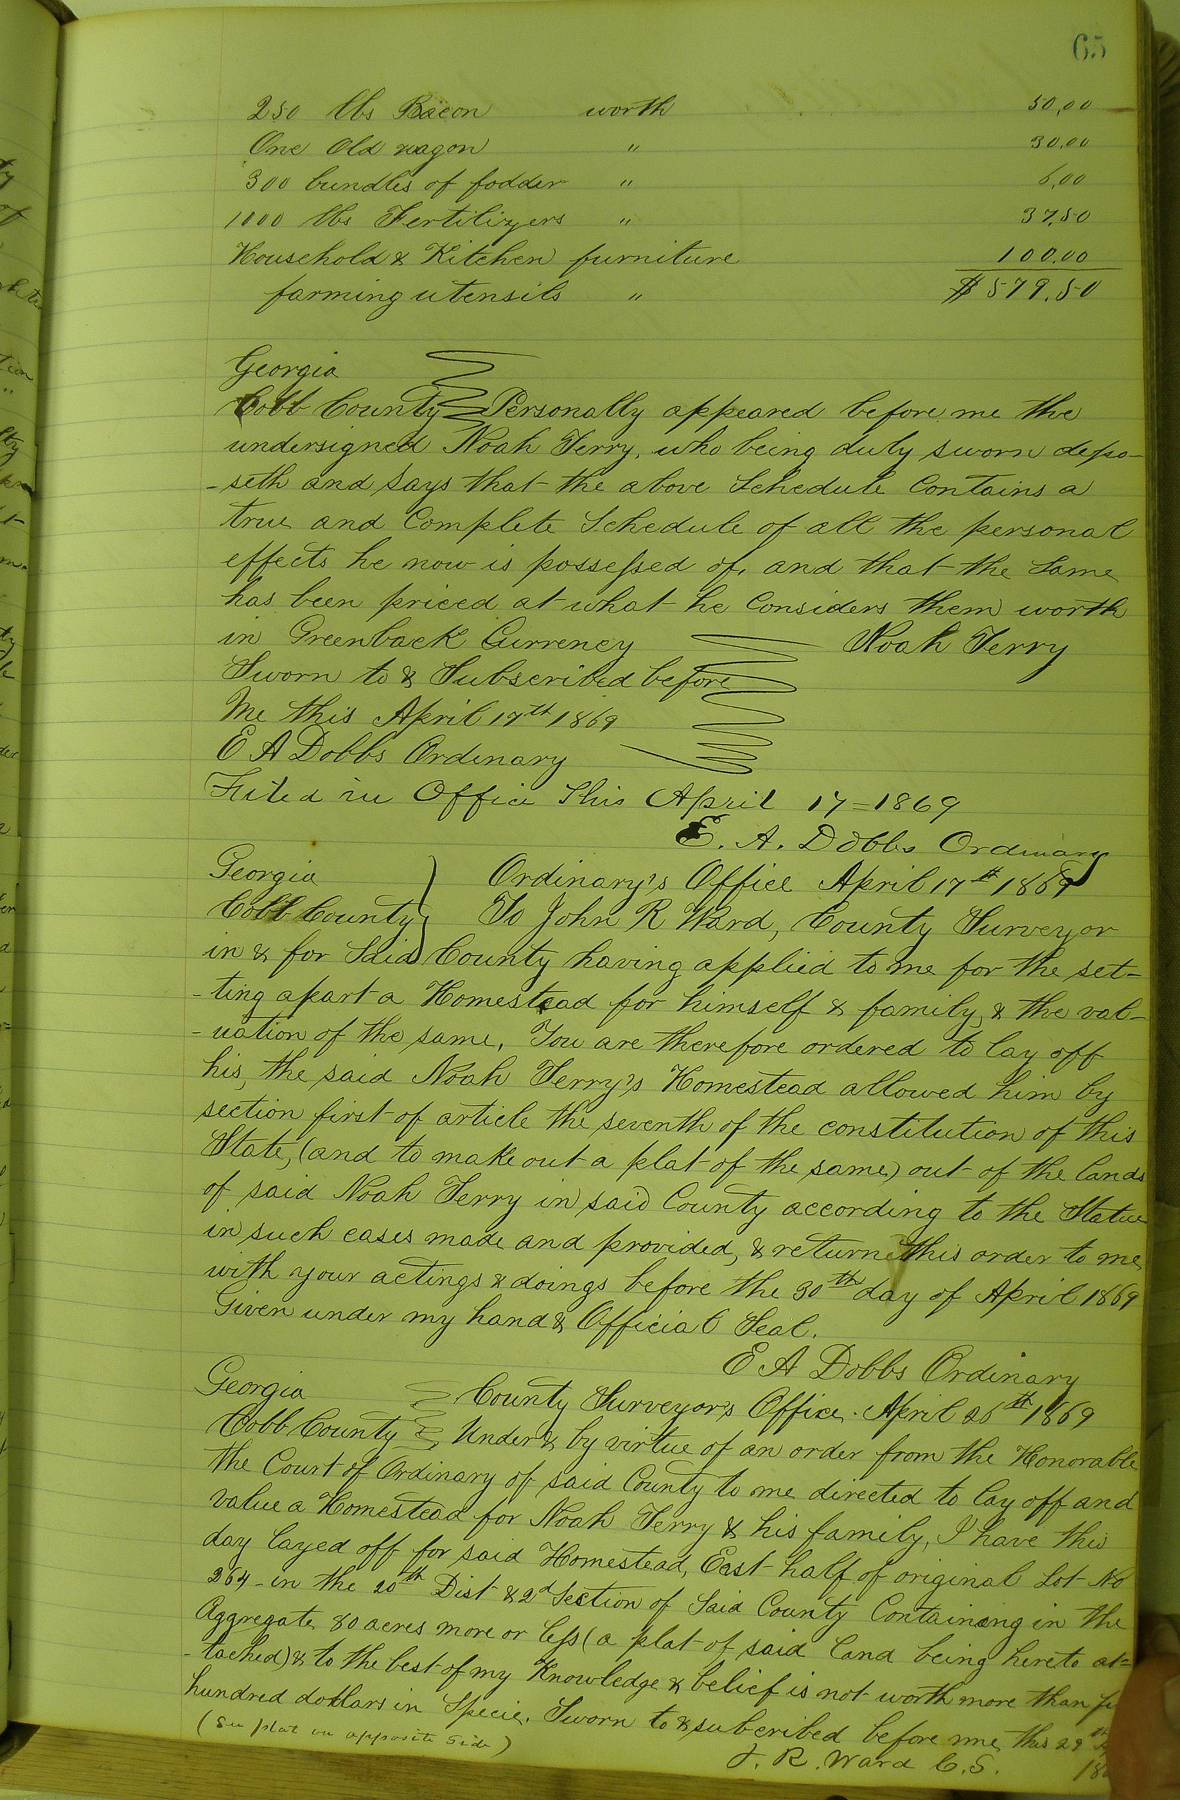 65
250 lbs Bacon worth 50,00
One Old wagon " 30,00
300 bundles of fodder " 6,00
1000 lbs Fertilizers " 37,50
Household & Kitchen furniture 100,00
farming utensils " $579.50
Georgia
Cobb County Personally appeared before me the
undersigned Noah Terry, who being duly sworn depo-
-seth and says that the above Schedule Contains a
true and Complete Schedule of all the personal
effects he now is possessed of, and that the Same
has been priced at what he Considers them worth
in Greenback Currency Noah Terry
Sworn to & Subscribed before
Me this April 17th 1869
E A Dobbs Ordinary
Filed in Office This April 17=1869
E. A. Dobbs Ordinary
Georgia Ordinary's Office April 17th 1869
Cobb County To John R Ward, County Surveyor
in & for Said County having applied to me for the set-
-ting apart a Homestead for himself & family, & the val-
-uation of the same. You are therefore ordered to lay off
his, the said Noah Terry's Homestead allowed him by
section first of article the seventh of the constitution of this
State, (and to make out a plat of the same) out of the lands
of said Noah Terry in said County according to the Statue
in such cases made and provided, & return this order to me
with your actings & doings before the 30th day of April 1869
Given under my hand & Official Seal.
E A Dobbs Ordinary
Georgia County Surveyors Office. April 26th 1869
Cobb County Under & by virtue of an order from the Honorable
the Court of Ordinary of said County to me directed to lay off and
value a Homestead for Noah Terry & his family, I have this
day layed off for said Homestead, East half of original Lot No
264 in the 20th Dist & 2d Section of Said County Containing in the
Aggregate 80 acres more or less (a plat of said land being hereto at=
-tached) & to the best of my Knowledge & belief is not worth more than
hundred dollars in Specie. Sworn to & subcribed before me this 29th
(See plat on opposite side)
J. R. Ward C.S.